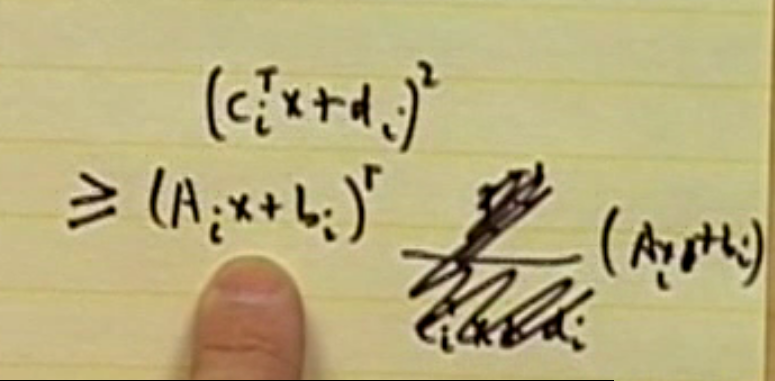 (cᵢᵀx+dᵢ)²
≥ (Aᵢx+bᵢ)ᵀ (Aᵢx+bᵢ)